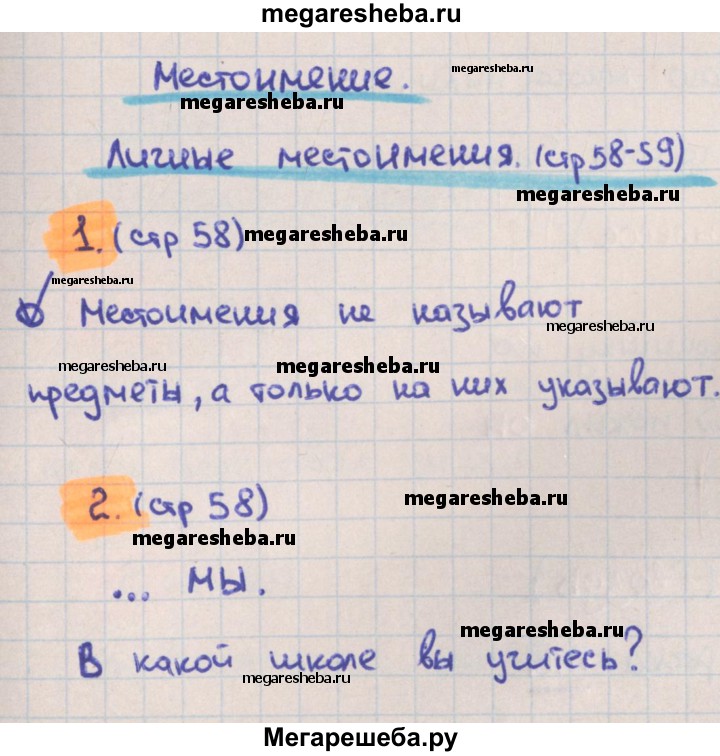 megaresheba.ru
Местоимение.
megaresheba.ru
megaresheba.ru
Личные местоимения. (стр 58-59)
megaresheba.ru
1. (стр 58)
megaresheba.ru
megaresheba.ru
Местоимения не называют
megaresheba.ru
megaresheba.ru
megaresheba.ru
предметы, а только на них указывают.
2. (стр 58)
megaresheba.ru
megaresheba.ru
... мы.
megaresheba.ru
В какой школе вы учитесь?
megaresheba.ru
Мегарешеба.ру